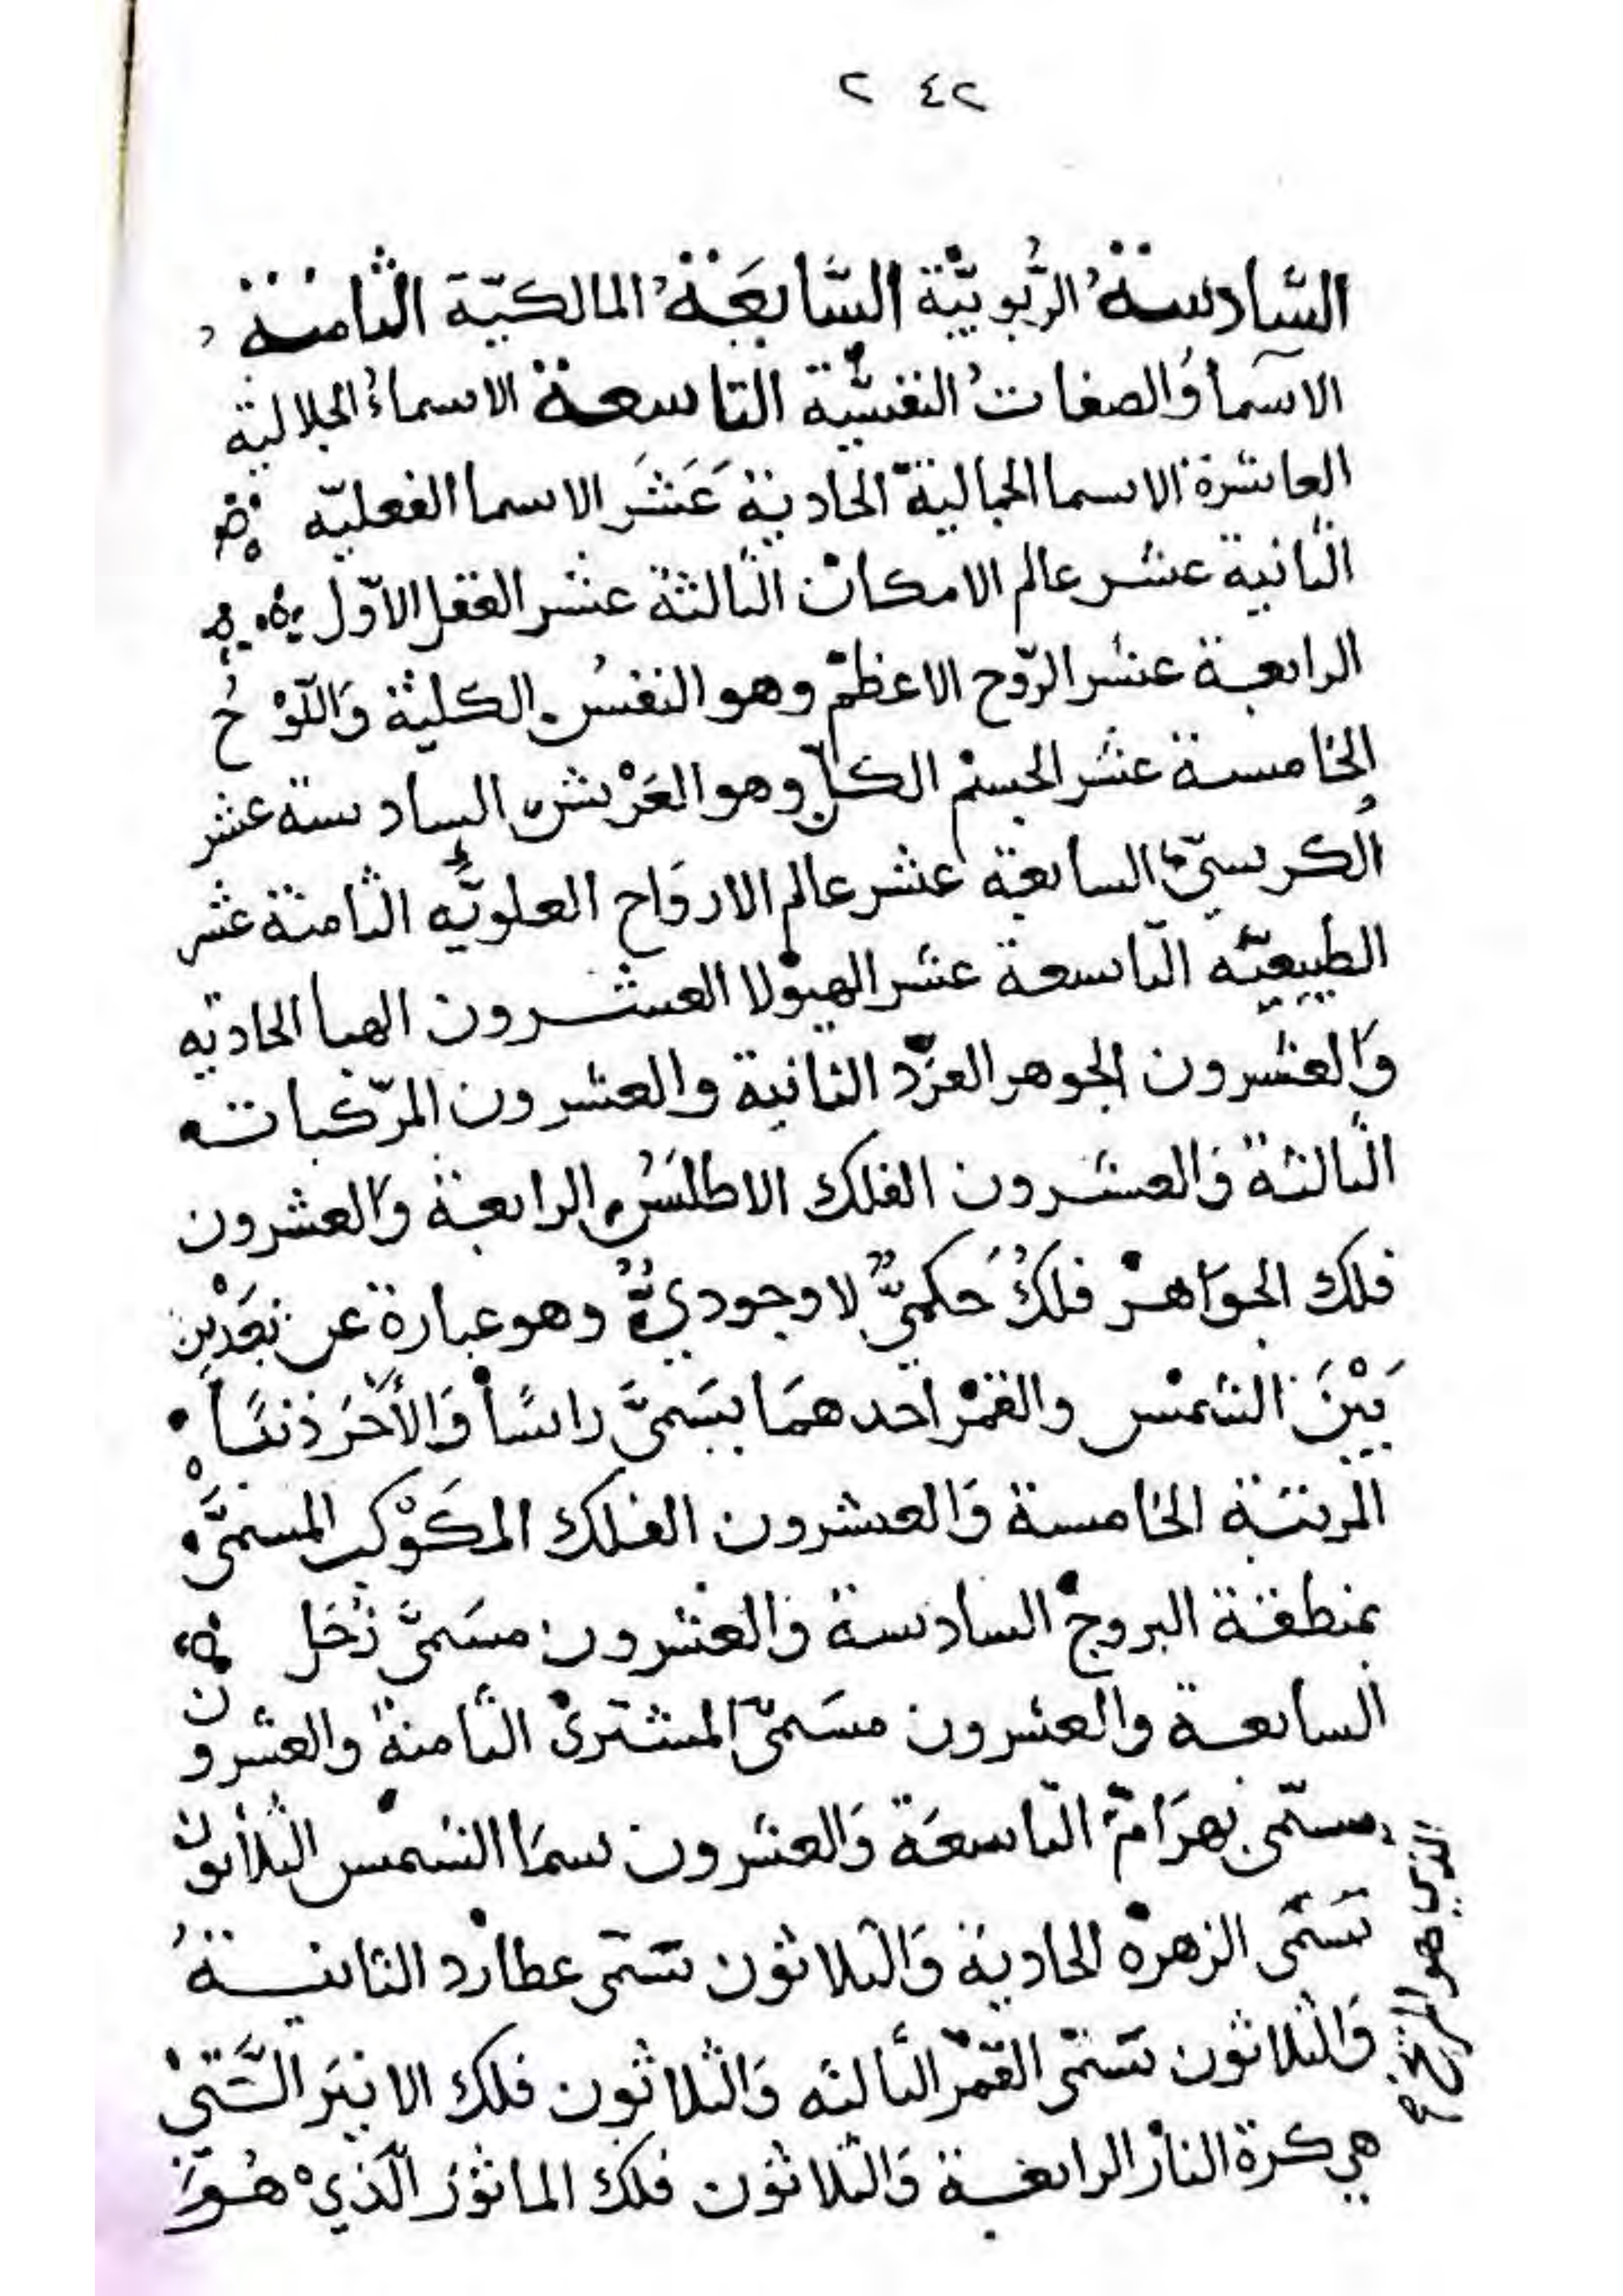 ٢٤٢
السَّادسةُ الرُّبوبيَّة السَّابعَةُ المالكيّة الثامنة
الاسمأ والصفات النفسيَّة التاسعة الاسماءُ الجلالية
العاشرة الاسما الجمالية الحادية عَشَر الاسما الفعليّه
الثانية عشر عالم الامكان الثالثة عشر العقل الاوّل
الرابعة عشر الرّوح الاعظم وهو النفسُ الكلية وَاللّوْحُ
الخامسة عشر الجسم الكل وهو العَرْش السادسة عشر
الكرسيّ السابعة عشر عالم الاروَاح العلويّه الثامنة عشر
الطبيعيّه التاسعة عشر الهيولا العشرون الهبا الحاديه
وَالعشرون الجوهر الفرد الثانية والعشرون المركّبات
الثالثة وَالعشرون الفلك الاطلسُ الرابعة وَالعشرون
فلك الجوَاهر فلكٌ حَكميٌّ لا وجوديٌّ وهو عبارة عن بعَدْين
بَيْنَ الشمس والقمر احدهمَا يسَمىَّ راسًا وَالأخَر ذنبًا
المرتبة الخامسة وَالعشرون الفلك المكَوْكب المسمىَّ
بمنطقة البروج السادسة وَالعشرون مسَمىَّ زُحَل
السابعة والعشرون مسَمىّ المشترى الثامنة والعشرون
مسمّى بهرَام التاسعَة وَالعشرون سمَا الشمس الثلاثون
تسَمّى الزهره الحادية وَالثلاثون تسَمّى عطارد الثانيــةُ
وَالثلاثون تسَمّى القمر الثالثه وَالثلاثون فلك الاثير الَّتيْ
هي كرة النار الرابعــة وَالثلاثون فلك الماثور الَّذيْ هُوَ
الذي هو المريخ